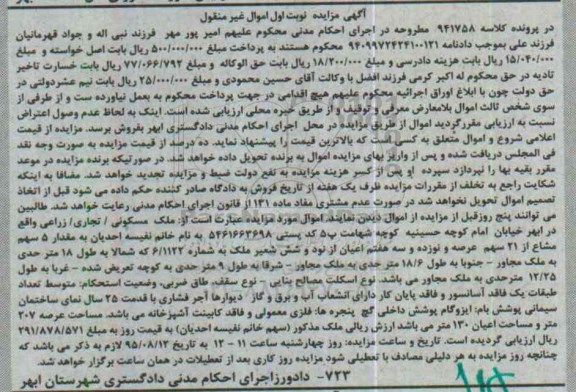 آگهی مزایده نوبت اول اموال غیر منقول
در پرونده کلاسه ۹۴۱۷۵۸ مطروحه در اجرای احکام مدنی محکوم علیهم امیر پور مهر فرزند نبی اله و جواد قهرمانیان
فرزند علی بموجب دادنامه ۹۴۰۹۹۷۲۴۲۴۱۰۰۱۲۱ محکوم هستند به پرداخت مبلغ ۵۰۰/۰۰۰/۰۰۰ ریال بابت اصل خواسته و مبلغ
۱۵/۰۴۰/۰۰۰ ریال بابت هزینه دادرسی و مبلغ ۱۸/۲۰۰/۰۰۰ ریال بابت حق الوکاله و مبلغ ۷۷/۰۶۶/۷۹۲ ریال بابت خسارت تاخیر
تادیه در حق محکوم له اکبر کرمی فرزند افضل با وکالت آقای حسین محمودی و مبلغ ۲۵/۰۰۰/۰۰۰ ریال بابت نیم عشردولتی در
حق دولت چون با ابلاغ اوراق اجرائیه محکوم علیهم هیچ اقدامی در جهت پرداخت محکوم به بعمل نیاورده ست و از طرفی از
سوی شخص ثالث اموال بلامعارض معرفی و توقیف و از طریق خبره محلی ارزیابی شده است. اینک به لحاظ عدم وصول اعتراض
نسبت به ارزیابی مقررگردید اموال از طریق مزایده در محل اجرای احکام مدنی دادگستری ابهر بفروش برسد. مزایده از قیمت
اعلامی شروع و اموال متعلق به کسی است که بالاترین قیمت را پیشنهاد نماید. ده درصد از قیمت مزایده به صورت وجه نقد
فی المجلس دریافت شده و پس از واریز بهای مزایده اموال به برنده تحویل داده خواهد شد. در صورتیکه برنده مزایده در موعد
مقرر بقیه بها را نپردازد سپرده او پس از کسر هزینه مزایده به نفع دولت ضبط و مزایده تجدید خواهد شد. مضافا به اینکه
شکایت راجع به تخلف از مقررات مزایده ظرف یک هفته از تاریخ فروش به دادگاه صادر کننده حکم داده می شود قبل از اتخاذ
تصمیم اموال تحویل نخواهد شد در صورت عدم مشتری مفاد ماده ۱۳۱ از قانون اجرای احکام مدنی رعایت خواهد شد. طالبین
می توانند پنج روزقبل از مزایده از اموال دیدن نمایند. اموال مورد مزایده عبارت است از: ملک مسکونی / تجاری/ زراعی واقع
در ابهر خیابان امام کوچه حسینیه کوچه شهامت پ۵ کد پستی ۵۴۶۱۶۶۳۶۹۸ به نام خانم نفیسه احدیان به مقدار ۵ سهم
مشاع از ۲۱ سهم عرصه و نوزده و سه هفتم اعیان از نود و شش شعیر ملک به شماره ۶/۱۱۲۳ که شمالا به طول ۱۸ متر حدی
به ملک مجاور - جنوبا به طول ۱۸/۶ متر حدی به ملک مجاور - شرقا به طول ۹ متر حدی به کوچه تعریض شده - غربا به طول
۱۲/۲۵ مترحدی به ملک مجاور می باشد. نوع اسکلت مصالح بنایی - نوع سقف، طاق ضربی، وضعیت استحکام: متوسط تعداد
طبقات یک فاقد آسانسور و فاقد پایان کار دارای انشعاب آب و برق و گاز دیوارها آجر فشاری با قدمت ۲۵ سال نمای ساختمان
سیمانی پوشش بام: ایزوگام پوشش داخلی گچ پنجره ها: فلزی معمولی و فاقد کابینت آشپزخانه می باشد. مساحت عرصه ۲۰۷
متر و مساحت اعیان ۱۳۰ متر می باشد ارزش ریالی ملک مذکور (سهم خانم نفیسه احدیان) به قیمت روز به مبلغ ۲۹۱/۸۷۸/۵۷۱
ریال ارزیابی گردیده است. تاریخ و ساعت مزایده: روز چهارشنبه ساعت ۱۱ - ۱۲ به تاریخ ۹۵/۰۸/۱۲ لازم به ذکر می باشد که
چنانچه روز مزایده به هر دلیلی مصادف با تعطیلی شود مزایده روز کاری بعد از تعطیلات در همان ساعت برگزار خواهد شد.
۷۲۳- دادورزاجرای احکام مدنی دادگستری شهرستان ابهر